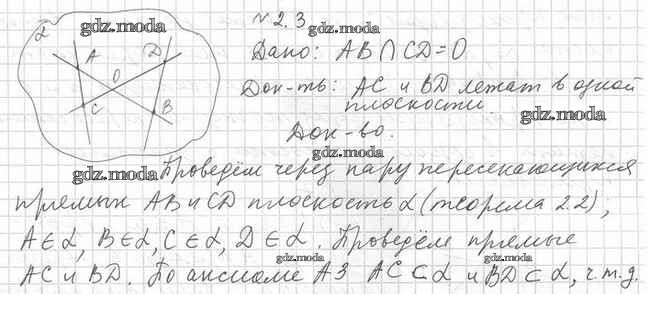 α
gdz.moda
№ 2.3
A
D
O
C
B
Дано: AB ∩ CD = O
Док-ть: AC и BD лежат в одной
плоскости
gdz.moda
Док-во.
gdz.moda
gdz.moda
Проведём через пару пересекающихся
прямых AB и CD плоскость α (теорема 2.2),
A ∈ α, B ∈ α, C ∈ α, D ∈ α. Проведём прямые
gdz.moda
gdz.moda
AC и BD. По аксиоме A3 AC ⊂ α и BD ⊂ α, ч.т.д.